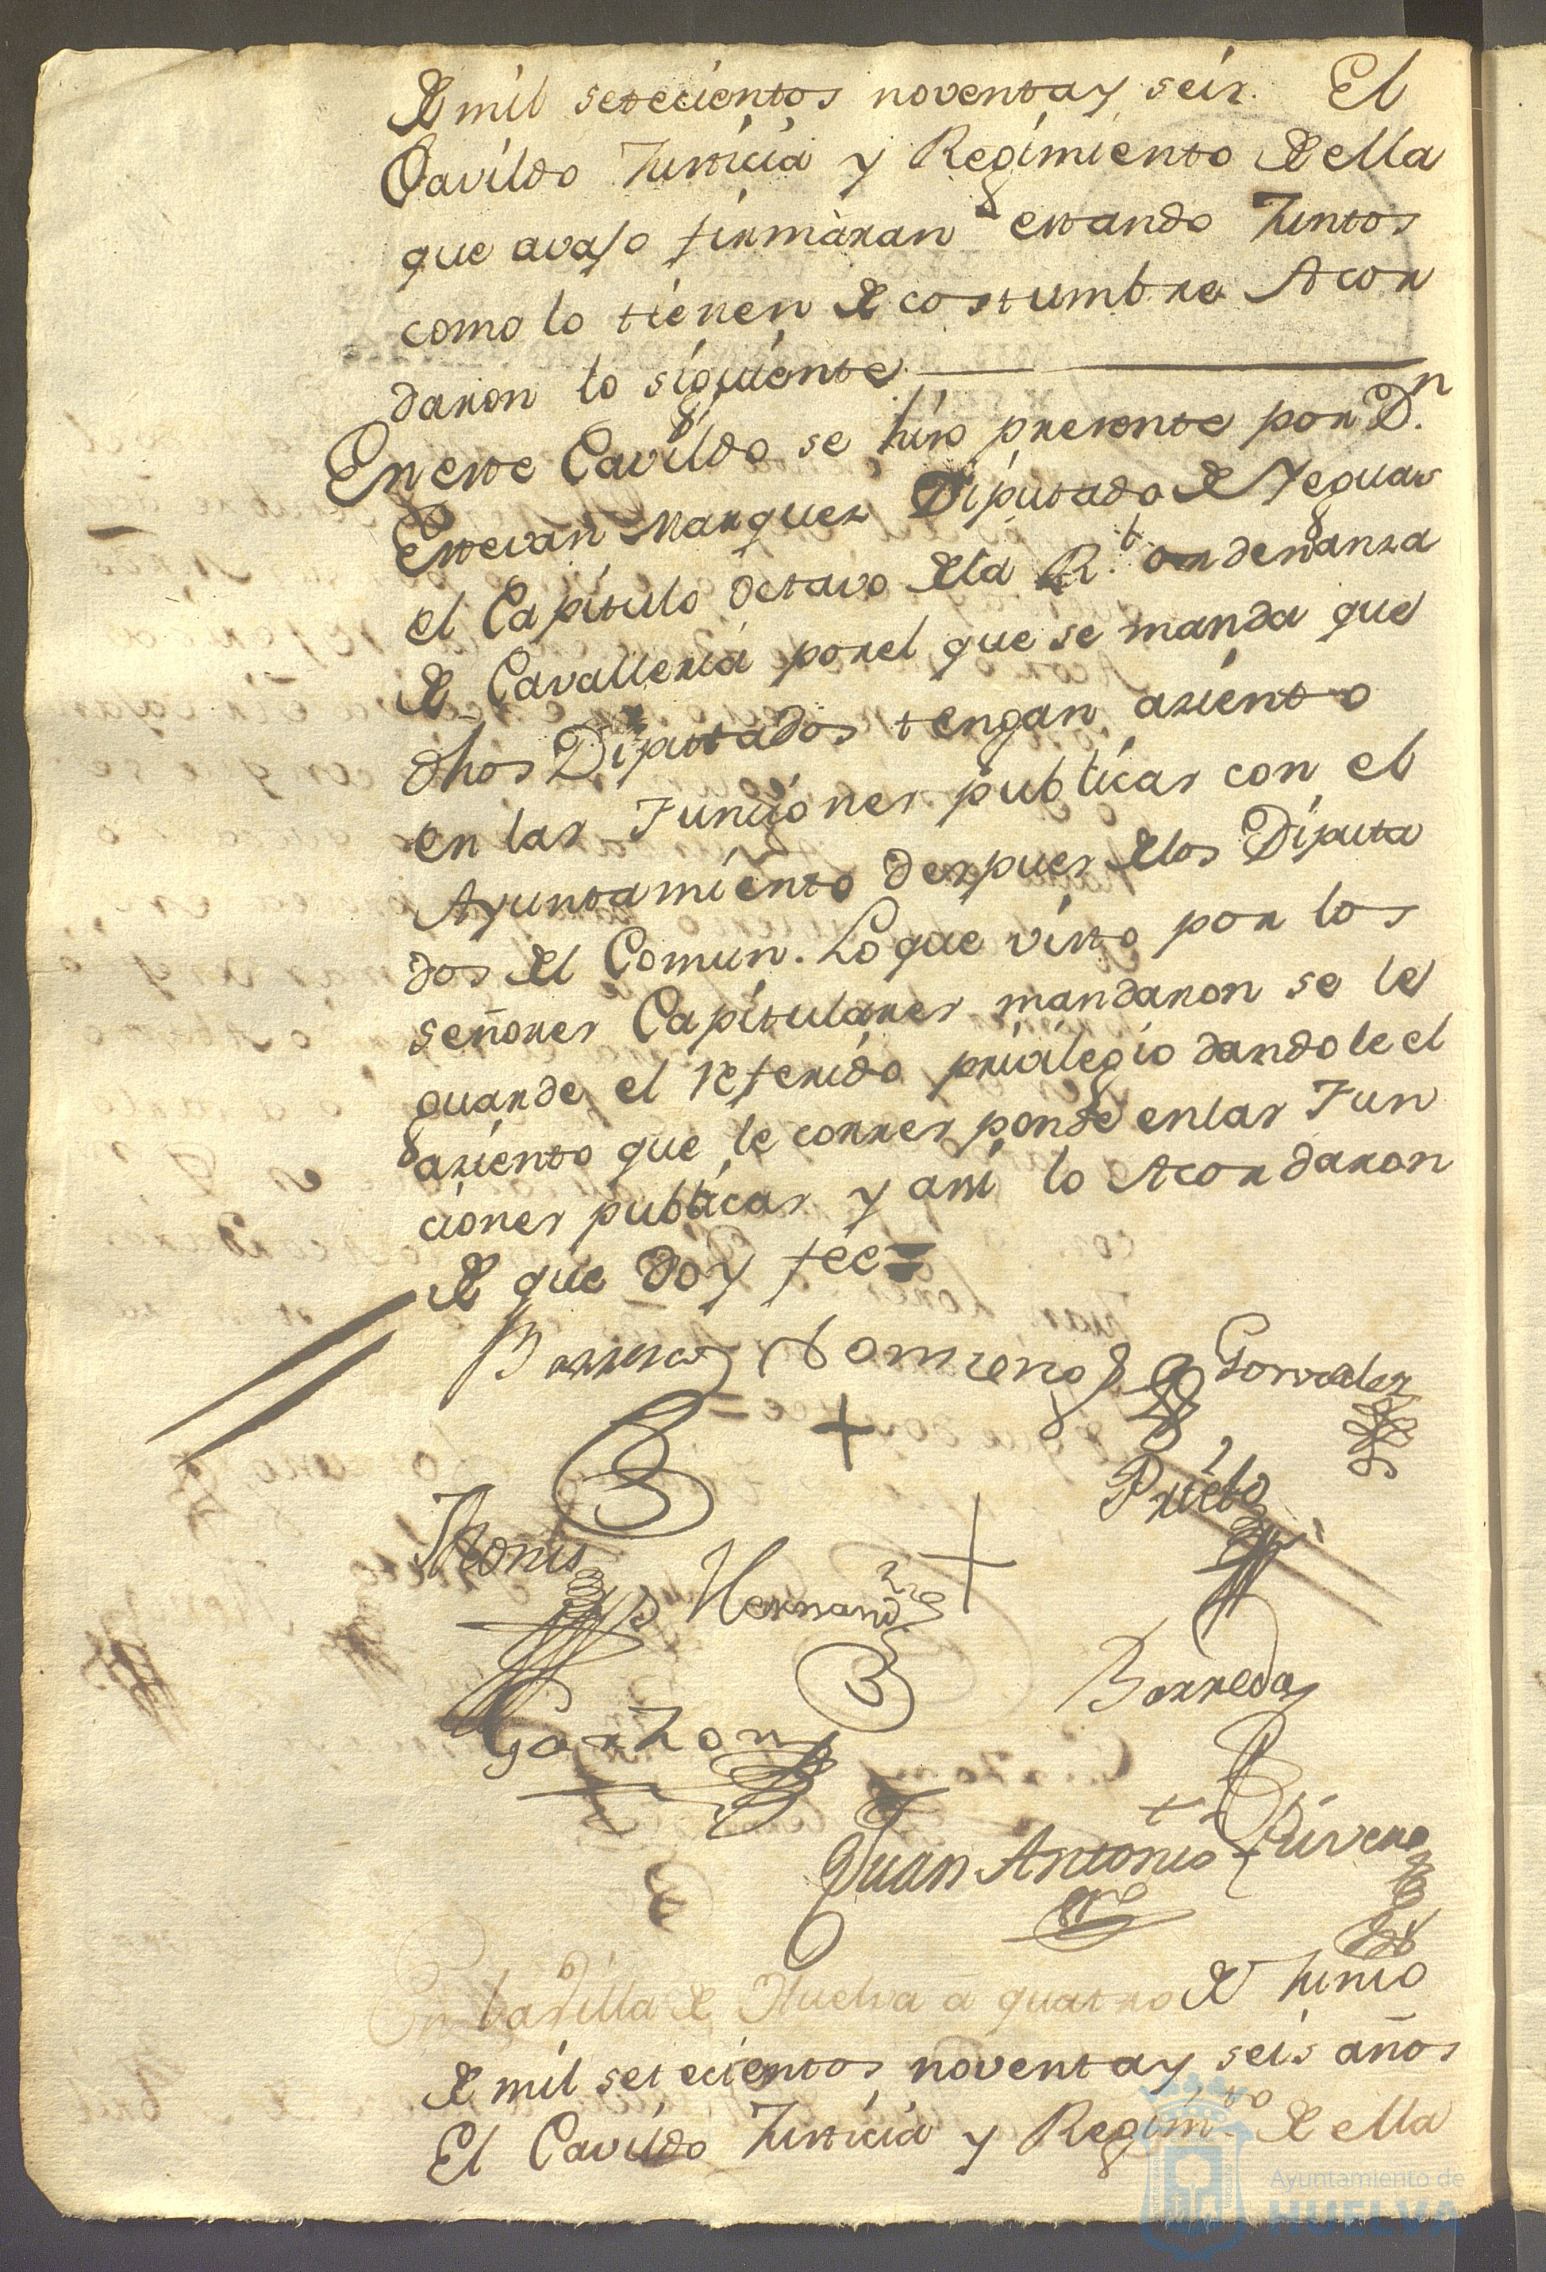 de mil setecientos noventa y seis. El
Cavildo Justicia y Regimiento de ella
que avajo firmàran estando Juntos
como lo tienen de costumbre Acor
daron lo siguiente
En este Cavildo se hizo presente por Dn.
Estevan Marquez Diputado de Yeguas
el Capitulo octavo dela Rl. ordenanza
de Cavalleria porel que se manda que
dhos Diputados tengan asiento
en las Funciones publicas con el
Ayuntamiento despues delos Diputa
dos del Comun. Lo que visto por los
señores Capitulares mandaron se le
guarde el referido privilegio dandole el
asiento que le corresponde enlas Fun
ciones publicas y assi lo Acordaron
de que doy fee=
Barrera Domreno Gonzalez
Prieto
Hernandz
Barreda
Garzon
Juan Antonio Rivera
Esno
En la Villa de Huelva a quatro de Junio
de mil setecientos noventa y seis años
El Cavildo Justicia y Regimto de ella
Ayuntamiento de
HUELVA